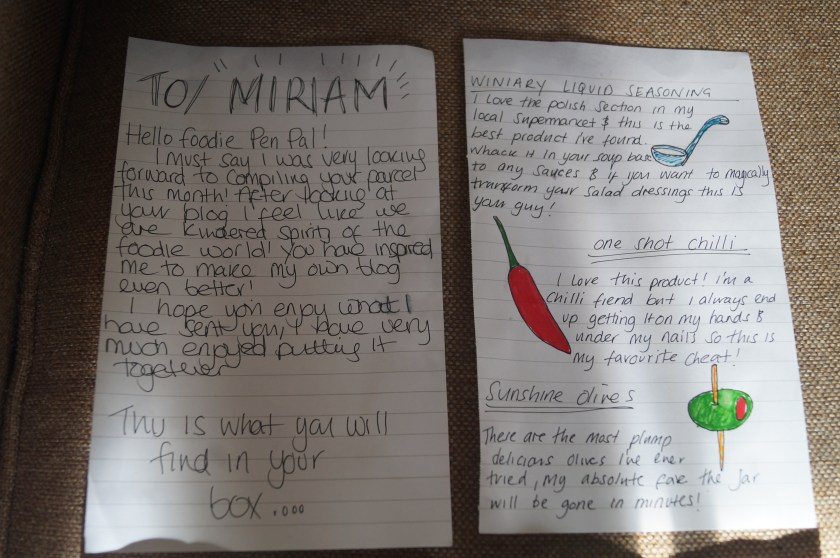 TO/ MIRIAM
Hello foodie Pen Pal!
I must say I was very looking
forward to compiling your parcel
this month! After looking at
your blog I feel like we
are kindered spirits of the
foodie world! You have inspired
me to make my own blog
even better!
I hope you enjoy what I
have sent you, I have very
much enjoyed putting it
together
This is what you will
find in your
box....
WINIARY LIQUID SEASONING
I love the polish section in my
local supermarket & this is the
best product I've found.
Whack it in your soup base
to any sauces & if you want to magically
transform your salad dressings this is
your guy!
one shot chilli
I love this product! I'm a
chilli fiend but I always end
up getting it on my hands &
under my nails so this is
my favourite cheat!
Sunshine olives
These are the most plump
delicious olives I've ever
tried, my absolute fave the jar
will be gone in minutes!